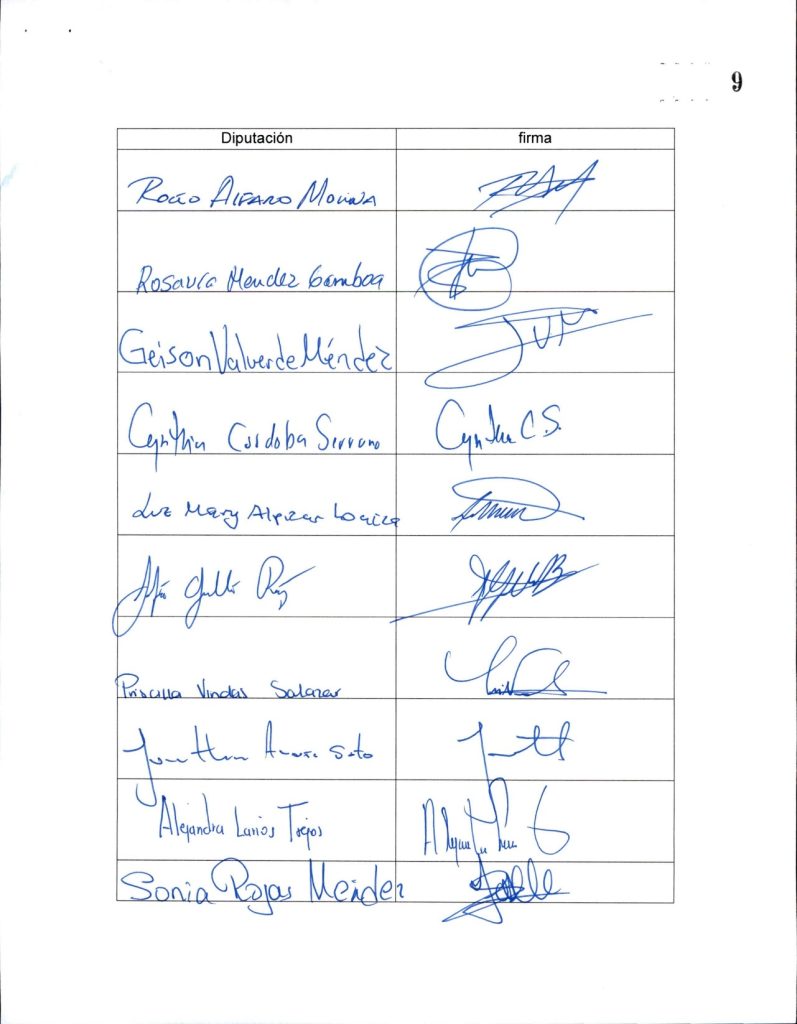 9
Diputación firma
Rocío Alfaro Molina
Rosaura Mendez Gamboa
Geison Valverde Méndez
Cynthia Cordoba Serrano Cynthia C.S.
Luz Mary Alpizar Loaiza
Priscilla Vindas Salazar
Jonathan Acuña Soto
Alejandra Larios Trejos
Sonia Rojas Mendez